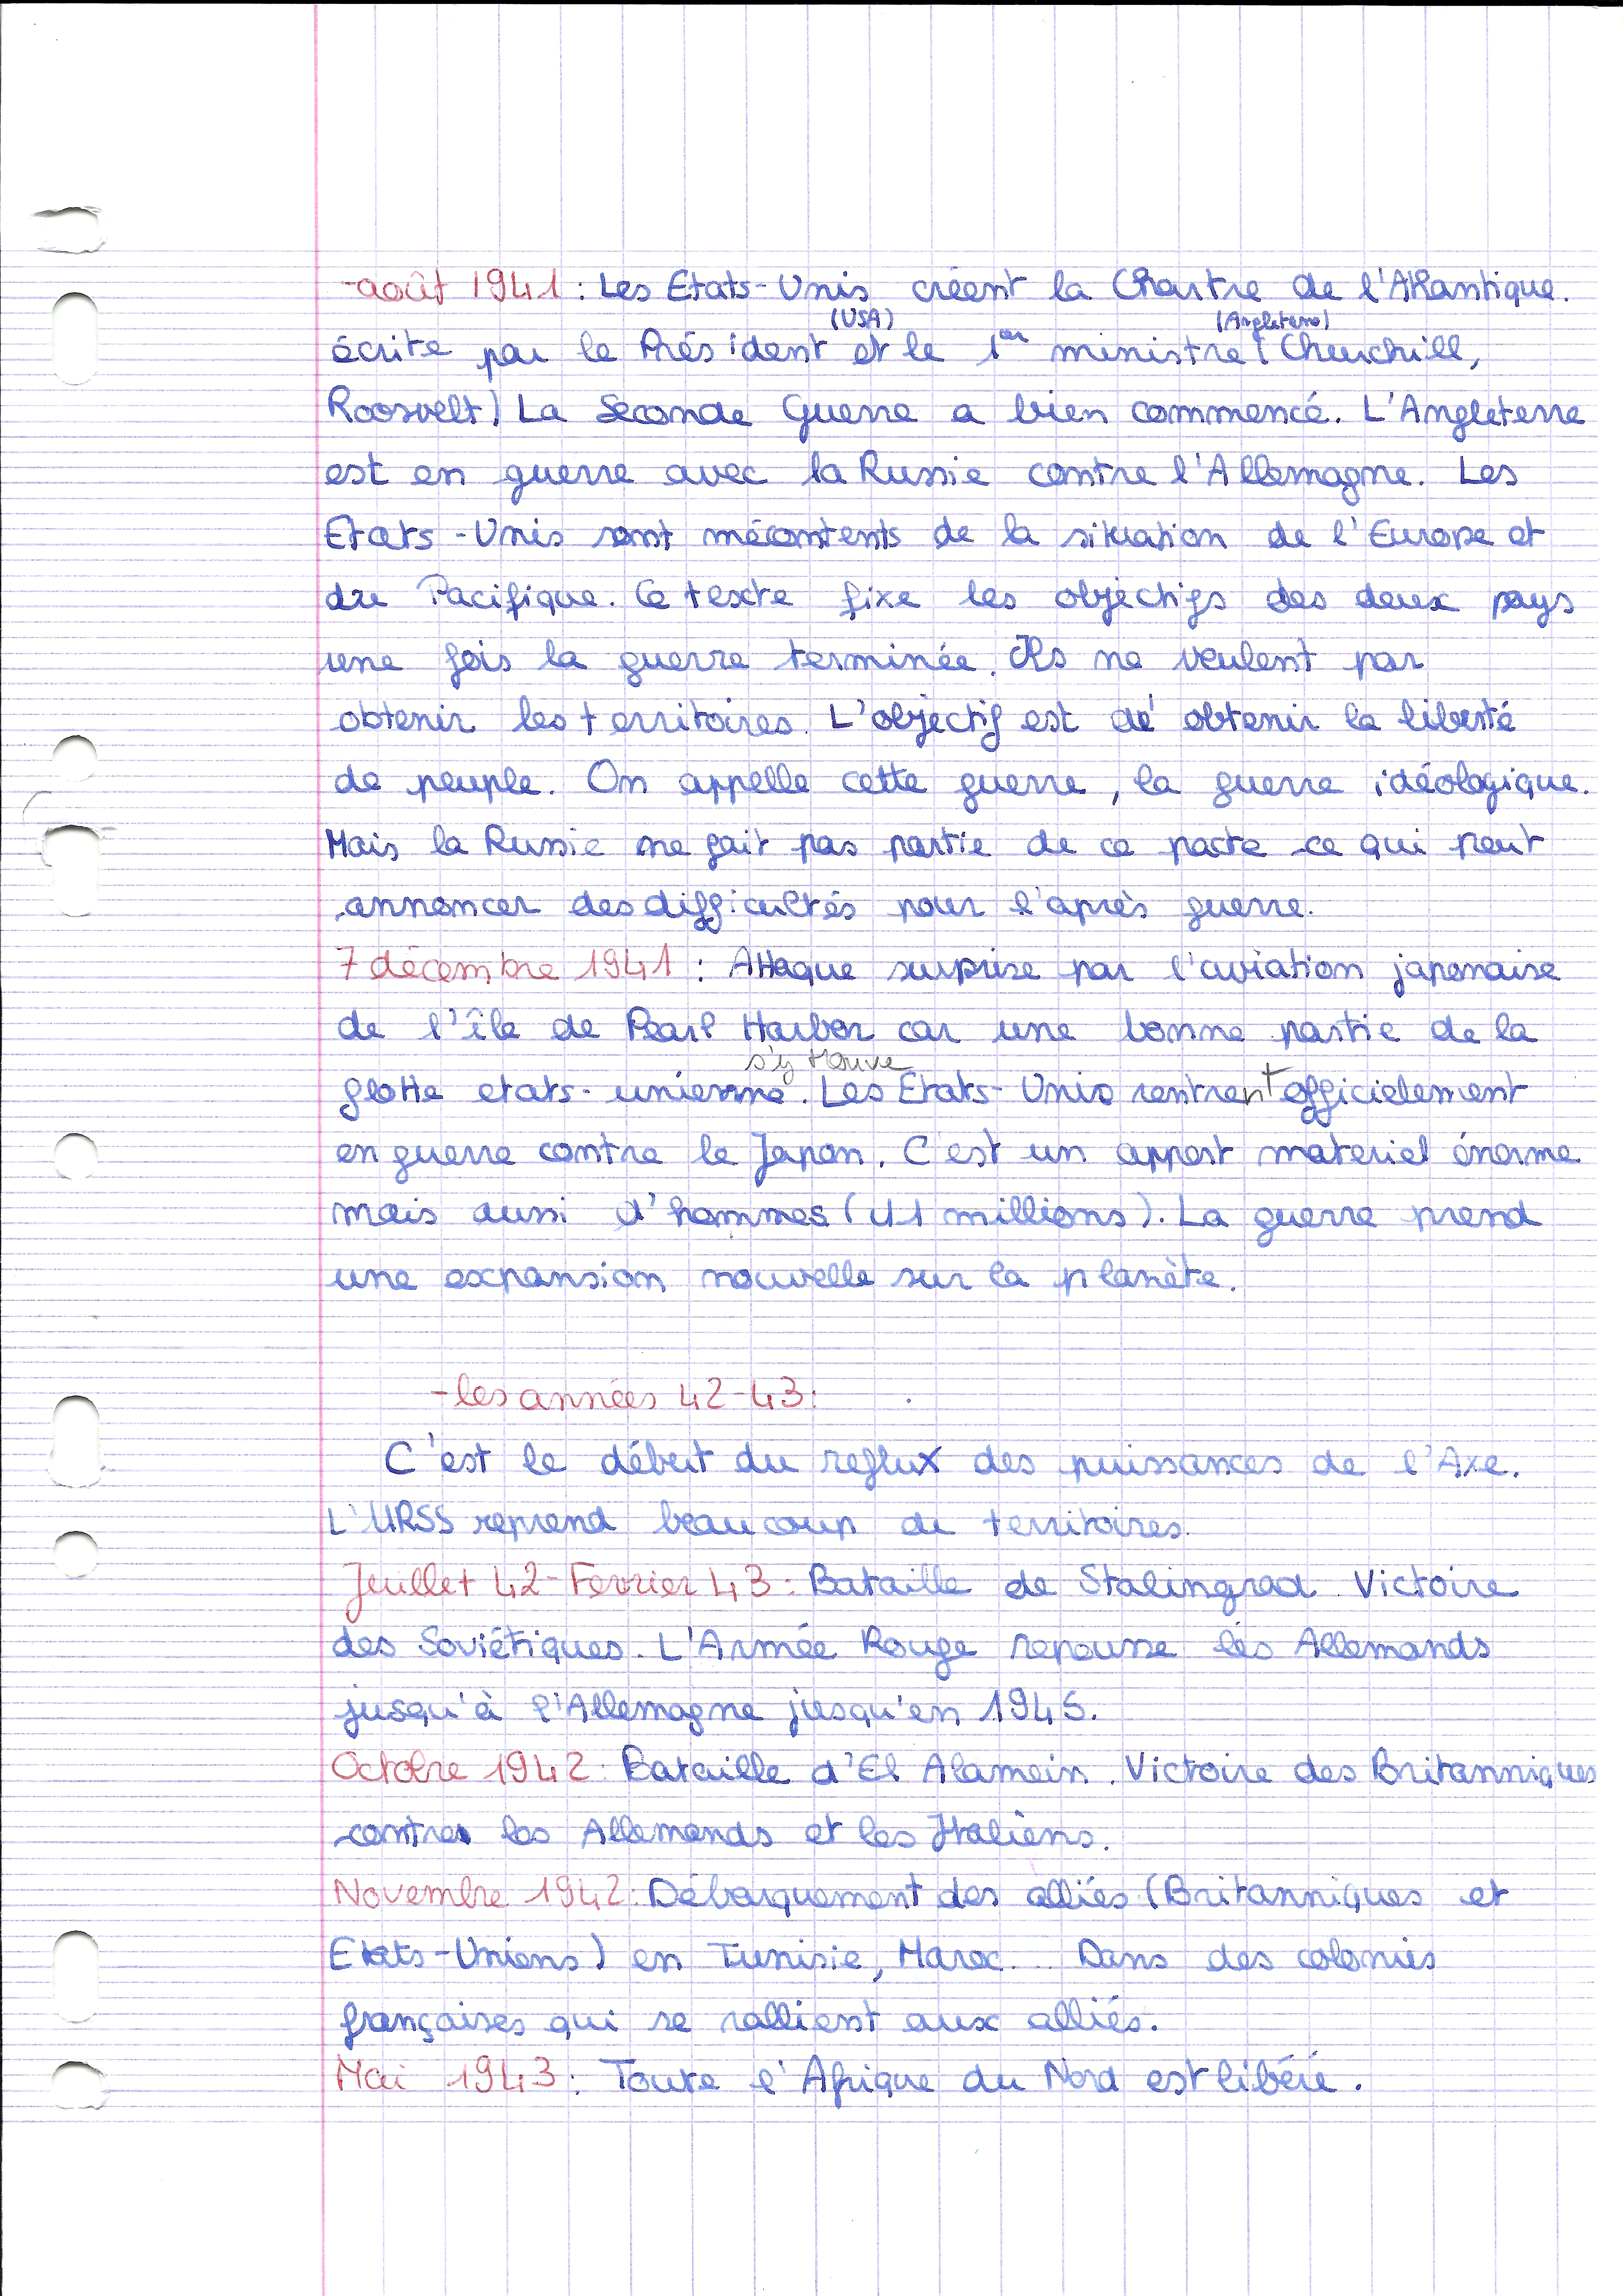 -août 1941 : Les Etats-Unis créent la Chartre de l'Atlantique.
(USA) (Angleterre)
écrite par le Président et le 1er ministre (Churchill,
Roosvelt) La Seconde Guerre a bien commencé. L'Angleterre
est en guerre avec la Russie contre l'Allemagne. Les
Etats-Unis sont mécontents de la situation de l'Europe et
du Pacifique. Ce texte fixe les objectifs des deux pays
une fois la guerre terminée. Ils ne veulent par
obtenir les territoires. L'objectif est d' obtenir la liberté
de peuple. On appelle cette guerre, la guerre idéologique.
Mais la Russie ne fait pas partie de ce pacte ce qui peut
annoncer des difficultés pour l'après guerre.
7 décembre 1941 : Attaque surprise par l'aviation japonaise
de l'île de Pearl Harbor car une bonne partie de la
s'y trouve
flotte etats-unienne. Les Etats-Unis rentrent officielement
en guerre contre le Japon. C'est un apport materiel énorme
mais aussi d'hommes (11 millions). La guerre prend
une expansion nouvelle sur la planète.
-les années 42-43:
C'est le début du reflux des puissances de l'Axe.
L'URSS reprend beaucoup de territoires.
Juillet 42-Fevrier 43 : Bataille de Stalingrad. Victoire
des Soviétiques. L'Armée Rouge repousse les Allemands
jusqu'à l'Allemagne jusqu'en 1945.
Octobre 1942 : Bataille d'El Alamein. Victoire des Britanniques
contre les Allemands et les Italiens.
Novembre 1942 : Débarquement des alliés (Britanniques et
Etats-Uniens) en Tunisie, Maroc... Dans des colonies
françaises qui se rallient aux alliés.
Mai 1943 : Toute l'Afrique du Nord est libéré.